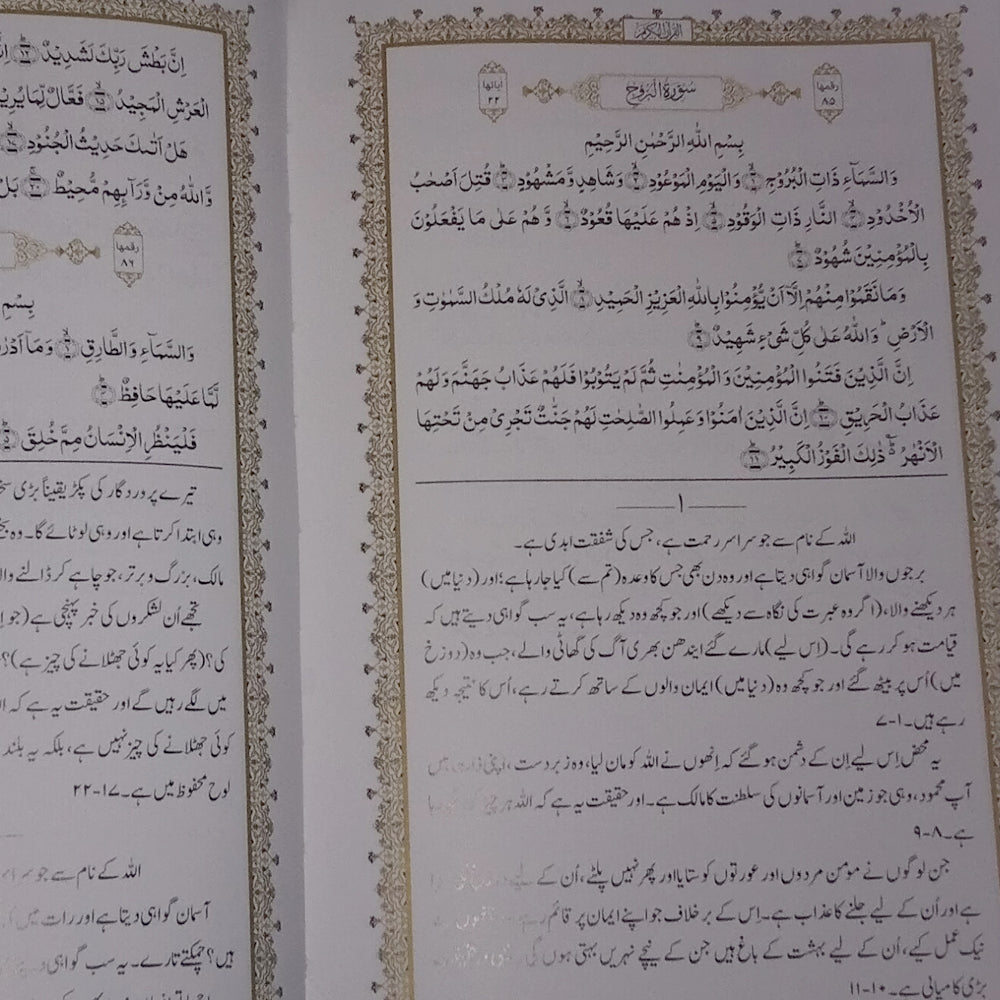 القرآن الکریم
رقمها ۸۵
سورة البروج
آیاتها ۲۲
بِسْمِ اللّٰهِ الرَّحْمٰنِ الرَّحِيْمِ
وَالسَّمَآءِ ذَاتِ الْبُرُوْجِ ۱ وَالْيَوْمِ الْمَوْعُوْدِ ۲ وَشَاهِدٍ وَّمَشْهُوْدٍ ۳ قُتِلَ اَصْحٰبُ
الْاُخْدُوْدِ ۴ النَّارِ ذَاتِ الْوَقُوْدِ ۵ اِذْ هُمْ عَلَيْهَا قُعُوْدٌ ۶ وَّ هُمْ عَلٰى مَا يَفْعَلُوْنَ
بِالْمُؤْمِنِيْنَ شُهُوْدٌ ۷
وَمَا نَقَمُوْا مِنْهُمْ اِلَّآ اَنْ يُّؤْمِنُوْا بِاللّٰهِ الْعَزِيْزِ الْحَمِيْدِ ۸ الَّذِيْ لَهٗ مُلْكُ السَّمٰوٰتِ وَ
الْاَرْضِ ؕ وَاللّٰهُ عَلٰى كُلِّ شَيْءٍ شَهِيْدٌ ۹
اِنَّ الَّذِيْنَ فَتَنُوا الْمُؤْمِنِيْنَ وَ الْمُؤْمِنٰتِ ثُمَّ لَمْ يَتُوْبُوْا فَلَهُمْ عَذَابُ جَهَنَّمَ وَلَهُمْ
عَذَابُ الْحَرِيْقِ ۱۰ اِنَّ الَّذِيْنَ اٰمَنُوْا وَعَمِلُوا الصّٰلِحٰتِ لَهُمْ جَنّٰتٌ تَجْرِيْ مِنْ تَحْتِهَا
الْاَنْهٰرُ ؕ ذٰلِكَ الْفَوْزُ الْكَبِيْرُ ۱۱
۱
اللہ کے نام سے جو سراسر رحمت ہے، جس کی شفقت ابدی ہے۔
برجوں والا آسمان گواہی دیتا ہے اور وہ دن بھی جس کا وعدہ (تم سے) کیا جا رہا ہے؛ اور (دنیا میں)
ہر دیکھنے والا، (اگر وہ عبرت کی نگاہ سے دیکھے) اور جو کچھ وہ دیکھ رہا ہے، یہ سب گواہی دیتے ہیں کہ
قیامت ہو کر رہے گی۔ (اِس لیے) مارے گئے ایندھن بھری آگ کی گھاٹی والے، جب وہ (دوزخ
میں) اُس پر بیٹھ گئے اور جو کچھ وہ (دنیا میں) ایمان والوں کے ساتھ کرتے رہے، اُس کا نتیجہ دیکھ
رہے ہیں۔ ۱-۷
یہ محض اِس لیے اِن کے دشمن ہو گئے کہ اِنھوں نے اللہ کو مان لیا، وہ زبردست، اپنی ذات میں
آپ محمود، وہی جو زمین اور آسمانوں کی سلطنت کا مالک ہے۔ اور حقیقت یہ ہے کہ اللہ ہر چیز
ہے۔ ۸-۹
جن لوگوں نے مومن مردوں اور عورتوں کو ستایا اور پھر نہیں پلٹے، اُن کے لیے
ہے اور اُن کے لیے جلنے کا عذاب ہے۔ اِس کے برخلاف جو اپنے ایمان پر قائم رہے
نیک عمل کیے، اُن کے لیے بہشت کے باغ ہیں جن کے نیچے نہریں بہتی ہوں گی
بڑی کامیابی ہے۔ ۱۰-۱۱
اِنَّ بَطْشَ رَبِّكَ لَشَدِيْدٌ ۱۲
الْعَرْشِ الْمَجِيْدُ ۱۵ فَعَّالٌ لِّمَا
هَلْ اَتٰىكَ حَدِيْثُ الْجُنُوْدِ ۱۷
وَّاللّٰهُ مِنْ وَّرَآىِٕهِمْ مُّحِيْطٌ ۲۰ بَلْ
رقمها ۸۶
بِسْمِ
وَالسَّمَآءِ وَالطَّارِقِ ۱ وَمَآ
لَّمَّا عَلَيْهَا حَافِظٌ ۴
فَلْيَنْظُرِ الْاِنْسَانُ مِمَّ خُلِقَ ۵
تیرے پروردگار کی پکڑ یقیناً بڑی
وہی ابتدا کرتا ہے اور وہی لوٹائے گا۔ وہ
مالک، بزرگ و برتر، جو چاہے کر ڈالنے
تجھے اُن لشکروں کی خبر پہنچی ہے (جو
کی؟ (پھر کیا یہ کوئی جھٹلانے کی چیز ہے)؟
میں لگے رہیں گے اور حقیقت یہ ہے کہ
کوئی جھٹلانے کی چیز نہیں ہے، بلکہ یہ بلند
لوح محفوظ میں ہے۔ ۱۷-۲۲
اللہ کے نام سے جو
آسمان گواہی دیتا ہے اور رات میں
ہیں؟ چمکتے تارے۔ یہ سب گواہی